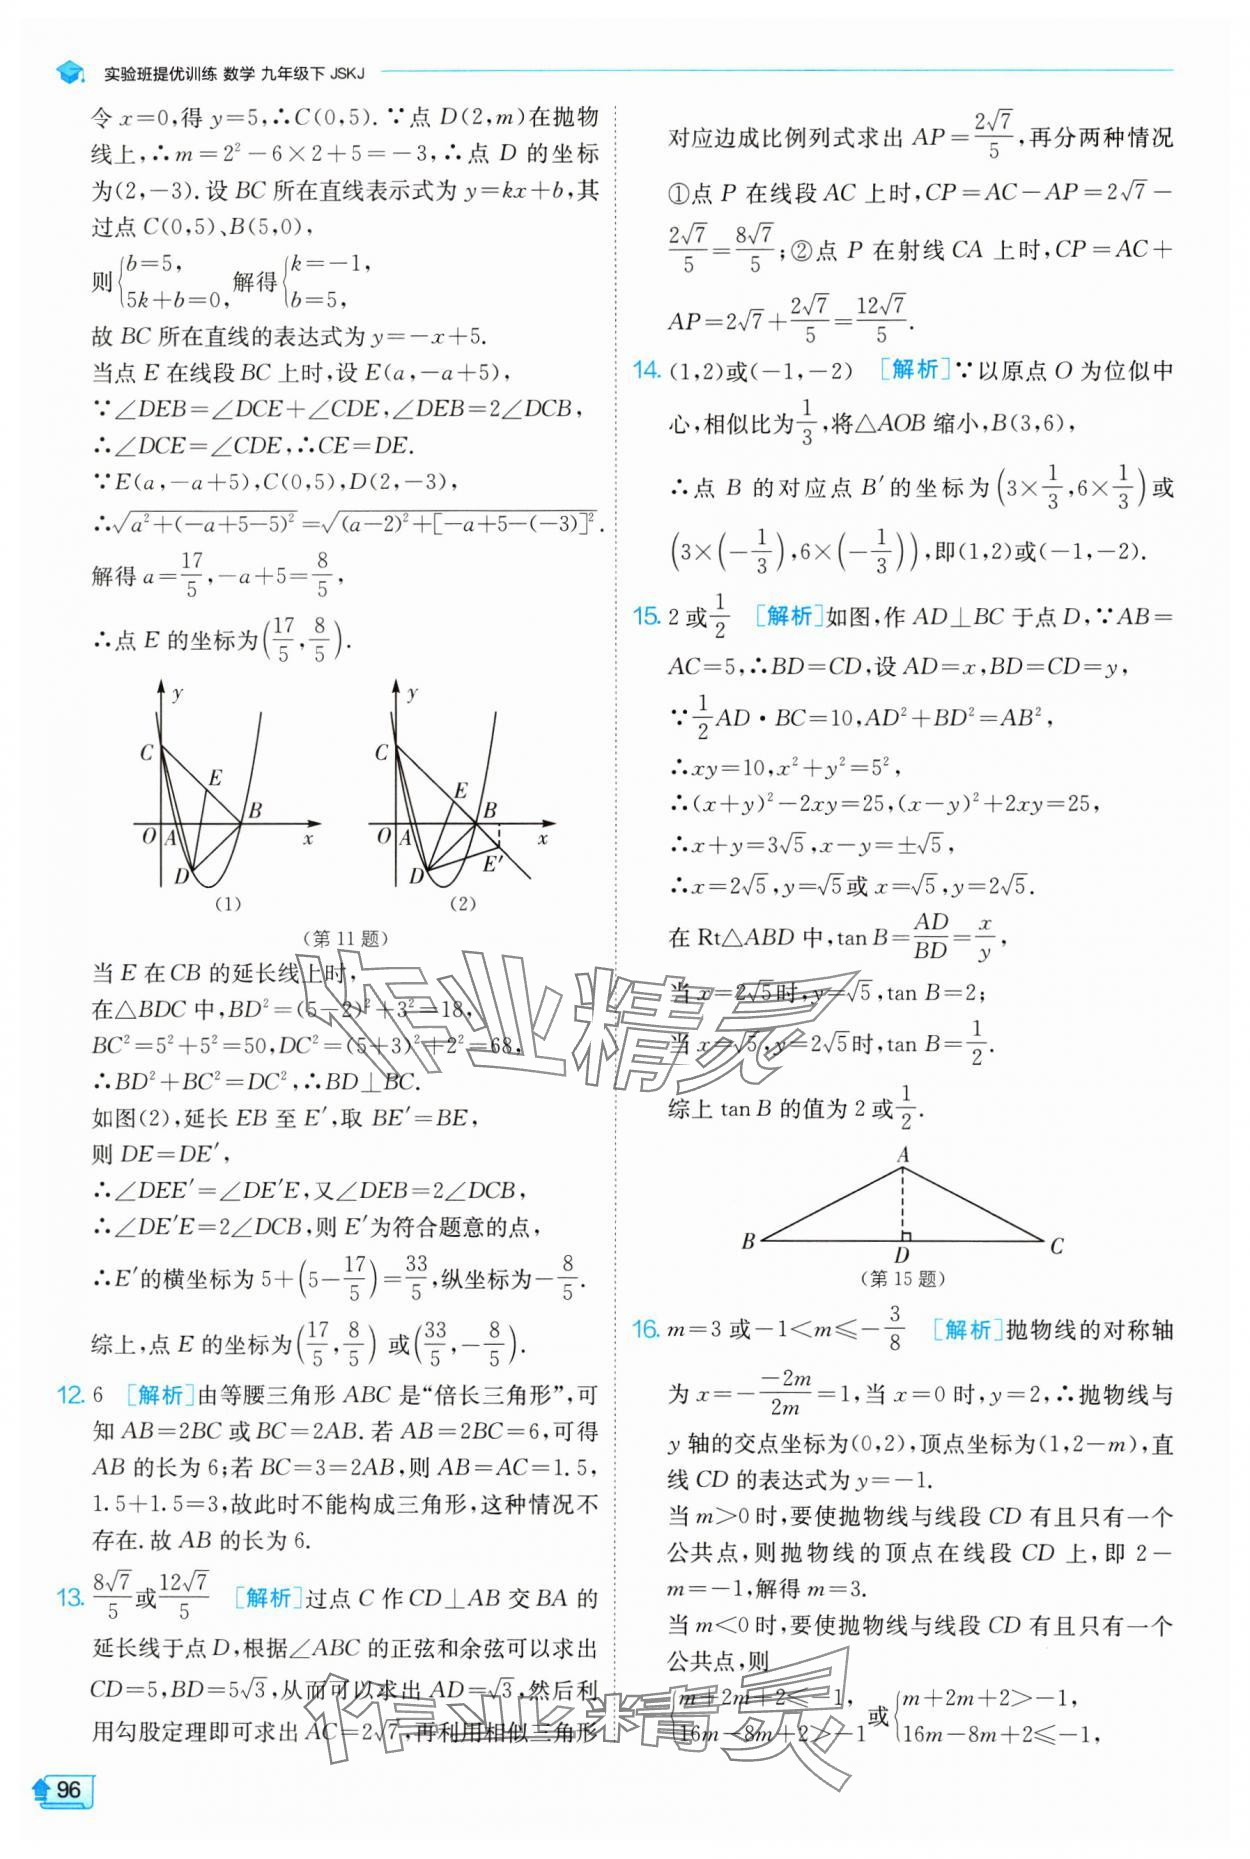 实验班提优训练 数学 九年级下 JSKJ
令 x=0,得 y=5,∴C(0,5). ∵点 D(2,m)在抛物
线上,∴m=2²-6×2+5=-3,∴点 D 的坐标
为(2,-3). 设 BC 所在直线表示式为 y=kx+b,其
过点 C(0,5)、B(5,0),
则{b=5, 5k+b=0, 解得{k=-1, b=5,
故 BC 所在直线的表达式为 y=-x+5.
当点 E 在线段 BC 上时,设 E(a,-a+5),
∵∠DEB=∠DCE+∠CDE,∠DEB=2∠DCB,
∴∠DCE=∠CDE,∴CE=DE.
∵E(a,-a+5),C(0,5),D(2,-3),
∴√(a²+(-a+5-5)²)=√((a-2)²+[-a+5-(-3)]²).
解得 a=17/5,-a+5=8/5,
∴点 E 的坐标为(17/5,8/5).
y
C
E
B
O A
x
D
(1)
y
C
E
B
O A
x
D
E′
(2)
(第 11 题)
当 E 在 CB 的延长线上时,
在△BDC 中,BD²=(5-2)²+3²=18,
BC²=5²+5²=50,DC²=(5+3)²+2²=68,
∴BD²+BC²=DC²,∴BD⊥BC.
如图(2),延长 EB 至 E′,取 BE′=BE,
则 DE=DE′,
∴∠DEE′=∠DE′E,又∠DEB=2∠DCB,
∴∠DE′E=2∠DCB,则 E′为符合题意的点,
∴E′的横坐标为 5+(5-17/5)=33/5,纵坐标为-8/5.
综上,点 E 的坐标为(17/5,8/5)或(33/5,-8/5).
12. 6 [解析]由等腰三角形 ABC 是“倍长三角形”,可
知 AB=2BC 或 BC=2AB. 若 AB=2BC=6,可得
AB 的长为 6;若 BC=3=2AB,则 AB=AC=1.5,
1.5+1.5=3,故此时不能构成三角形,这种情况不
存在. 故 AB 的长为 6.
13. 8√7/5或12√7/5 [解析]过点 C 作 CD⊥AB 交 BA 的
延长线于点 D,根据∠ABC 的正弦和余弦可以求出
CD=5,BD=5√3,从而可以求出 AD=√3,然后利
用勾股定理即可求出 AC=2√7,再利用相似三角形
对应边成比例列式求出 AP=2√7/5,再分两种情况
①点 P 在线段 AC 上时,CP=AC-AP=2√7-
2√7/5=8√7/5;②点 P 在射线 CA 上时,CP=AC+
AP=2√7+2√7/5=12√7/5.
14. (1,2)或(-1,-2) [解析]∵以原点 O 为位似中
心,相似比为1/3,将△AOB 缩小,B(3,6),
∴点 B 的对应点 B′的坐标为(3×1/3,6×1/3)或
(3×(-1/3),6×(-1/3)),即(1,2)或(-1,-2).
15. 2 或1/2 [解析]如图,作 AD⊥BC 于点 D,∵AB=
AC=5,∴BD=CD,设 AD=x,BD=CD=y,
∵1/2AD·BC=10,AD²+BD²=AB²,
∴xy=10,x²+y²=5²,
∴(x+y)²-2xy=25,(x-y)²+2xy=25,
∴x+y=3√5,x-y=±√5,
∴x=2√5,y=√5或 x=√5,y=2√5.
在 Rt△ABD 中,tan B=AD/BD=x/y,
当 x=2√5时,y=√5,tan B=2;
当 x=√5,y=2√5时,tan B=1/2.
综上 tan B 的值为 2 或1/2.
A
B
D
C
(第 15 题)
16. m=3 或-1<m≤-3/8 [解析]抛物线的对称轴
为 x=-(-2m)/2m=1,当 x=0 时,y=2,∴抛物线与
y 轴的交点坐标为(0,2),顶点坐标为(1,2-m),直
线 CD 的表达式为 y=-1.
当 m>0 时,要使抛物线与线段 CD 有且只有一个
公共点,则抛物线的顶点在线段 CD 上,即 2-
m=-1,解得 m=3.
当 m<0 时,要使抛物线与线段 CD 有且只有一个
公共点,则
{m+2m+2≤-1, 16m-8m+2>-1 或{m+2m+2>-1, 16m-8m+2≤-1,
作业精灵
作业精灵
96